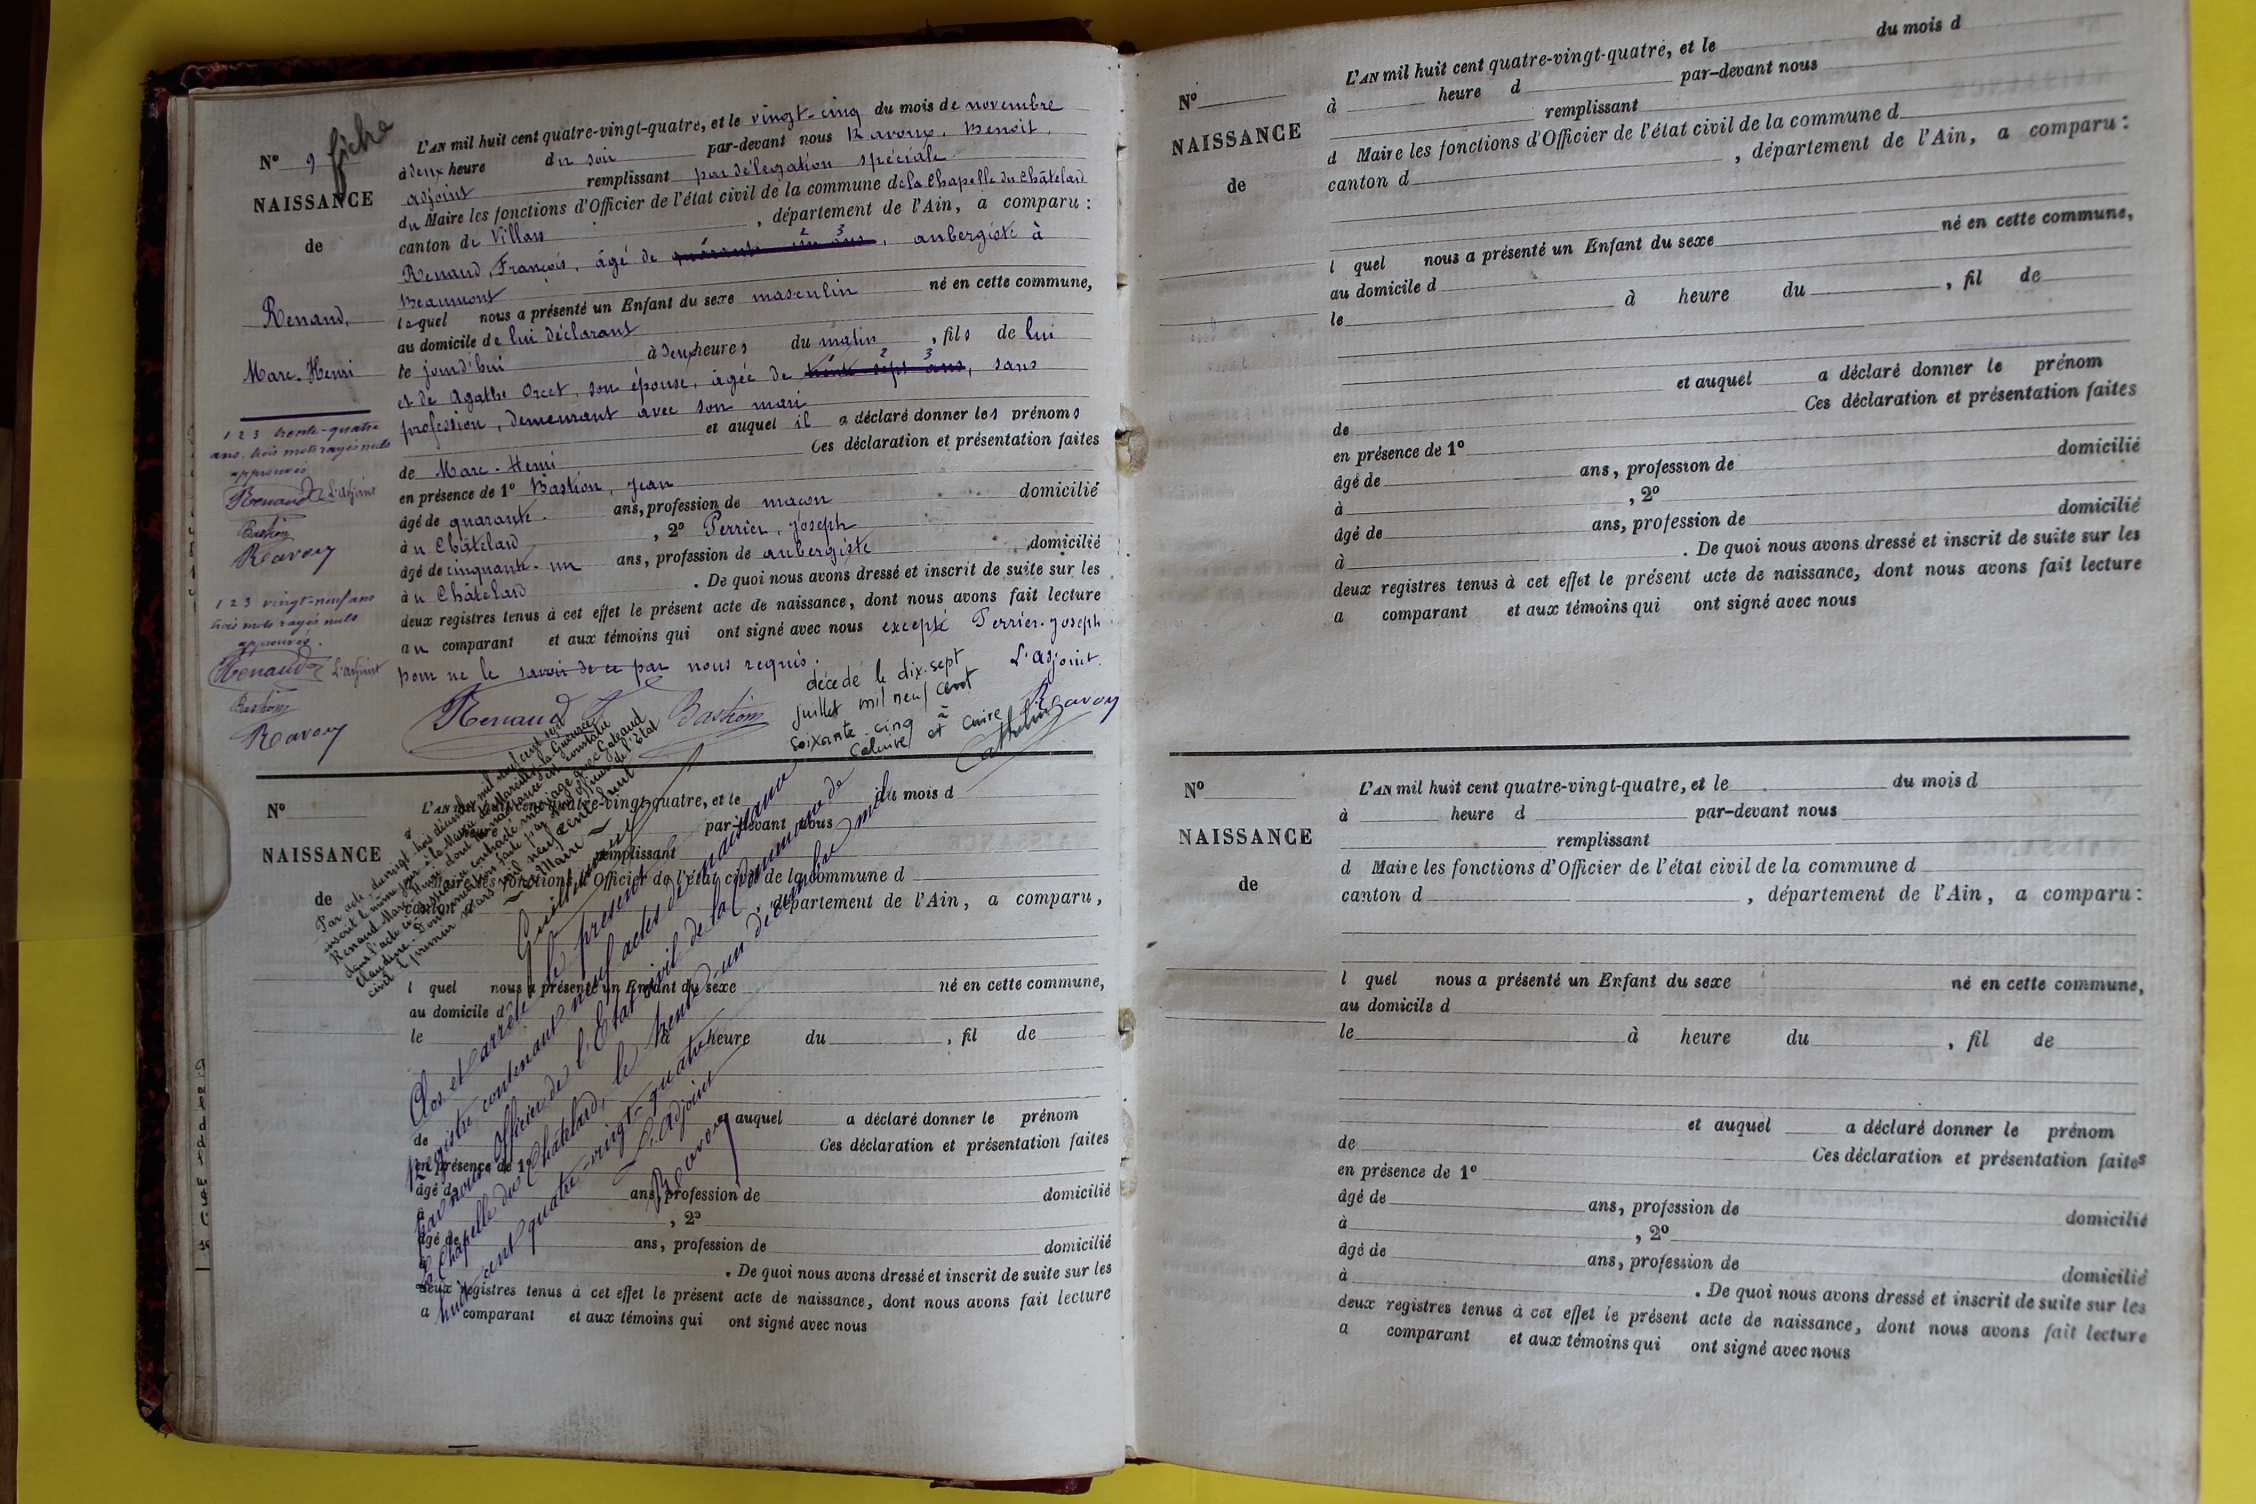 N° 9 fiche
NAISSANCE
de
Renaud,
Marc-Henri
1 2 3 trente-quatre
ans, trois mots rayés nuls
approuvés
Renaud L'adjoint
Bastion
Ravoux
1 2 3 vingt-neuf ans
trois mots rayés nuls
approuvés.
Renaud L'adjoint
Bastion
Ravoux
L'AN mil huit cent quatre-vingt-quatre, et le vingt-cinq du mois de novembre
à deux heure du soir par-devant nous Ravoux, Benoit,
adjoint remplissant par délégation spéciale
du Maire les fonctions d'Officier de l'état civil de la commune de la Chapelle du Châtelard
canton de Villars, département de l'Ain, a comparu :
Renaud, François, âgé de quarante un ans, aubergiste à
Beaumont
lequel nous a présenté un Enfant du sexe masculin né en cette commune,
au domicile de lui déclarant
le jourd'hui à deux heures du matin, fils de lui
et de Agathe Orcet, son épouse, âgée de trente sept ans, sans
profession, demeurant avec son mari
et auquel il a déclaré donner les prénoms
de Marc-Henri Ces déclaration et présentation faites
en présence de 1° Bastion, Jean
âgé de quarante ans, profession de maçon domicilié
à u Châtelard, 2° Perrier, Joseph
âgé de cinquante-un ans, profession de aubergiste domicilié
à u Châtelard. De quoi nous avons dressé et inscrit de suite sur les
deux registres tenus à cet effet le présent acte de naissance, dont nous avons fait lecture
au comparant et aux témoins qui ont signé avec nous excepté Perrier-Joseph
pour ne le savoir de ce par nous requis.
L'adjoint.
Renaud F Bastion Ravoux
décédé le dix-sept
juillet mil neuf cent
soixante-cinq à
Caluire et Cuire
N°
NAISSANCE
de
L'AN mil huit cent quatre-vingt-quatre, et le du mois d
par-devant nous
remplissant
Maire les fonctions d'Officier de l'état civil de la commune d
canton, département de l'Ain, a comparu,
l quel nous a présenté un Enfant du sexe né en cette commune,
au domicile d
le à heure du, fil de
et auquel a déclaré donner le prénom
de Ces déclaration et présentation faites
en présence de 1°
âgé de ans, profession de domicilié
à, 2°
âgé de ans, profession de domicilié
à. De quoi nous avons dressé et inscrit de suite sur les
deux registres tenus à cet effet le présent acte de naissance, dont nous avons fait lecture
a comparant et aux témoins qui ont signé avec nous
Clos et arrêté le présent
Registre contenant neuf actes de naissance
par nous officier de l'Etat civil de la Commune de
la Chapelle du Châtelard, le trente-un décembre mil
huit cent quatre-vingt-quatre
L'adjoint
Ravoux
Renaud Marc Henri dont la naissance est constatée
dans l'acte ci-dessus a contracté mariage avec
Claudine.
civil le premier mars mil neuf cent huit
Le Maire
N°
NAISSANCE
de
L'AN mil huit cent quatre-vingt-quatre, et le du mois d
à heure d par-devant nous
remplissant
d Maire les fonctions d'Officier de l'état civil de la commune d
canton d, département de l'Ain, a comparu :
l quel nous a présenté un Enfant du sexe né en cette commune,
au domicile d
le à heure du, fil de
et auquel a déclaré donner le prénom
de Ces déclaration et présentation faites
en présence de 1°
âgé de ans, profession de domicilié
à, 2°
âgé de ans, profession de domicilié
à. De quoi nous avons dressé et inscrit de suite sur les
deux registres tenus à cet effet le présent acte de naissance, dont nous avons fait lecture
a comparant et aux témoins qui ont signé avec nous
N°
NAISSANCE
de
L'AN mil huit cent quatre-vingt-quatre, et le du mois d
à heure d par-devant nous
remplissant
d Maire les fonctions d'Officier de l'état civil de la commune d
canton d, département de l'Ain, a comparu :
l quel nous a présenté un Enfant du sexe né en cette commune,
au domicile d
le à heure du, fil de
et auquel a déclaré donner le prénom
de Ces déclaration et présentation faites
en présence de 1°
âgé de ans, profession de domicilié
à, 2°
âgé de ans, profession de domicilié
à. De quoi nous avons dressé et inscrit de suite sur les
deux registres tenus à cet effet le présent acte de naissance, dont nous avons fait lecture
a comparant et aux témoins qui ont signé avec nous